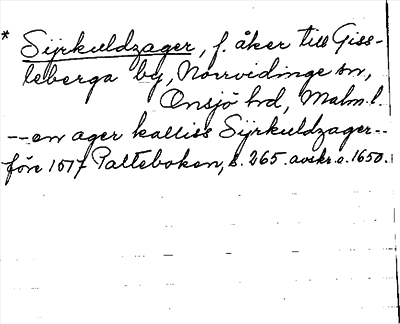 * Sijrkuldzager, f. åker till Giss-
leberga by, Norrvidinge sn,
Onsjö hd, Malm.l.
--en ager kalliss Sijrkuldzager--
före 1517 Paltebokan, s. 265. avskr. c. 1650.